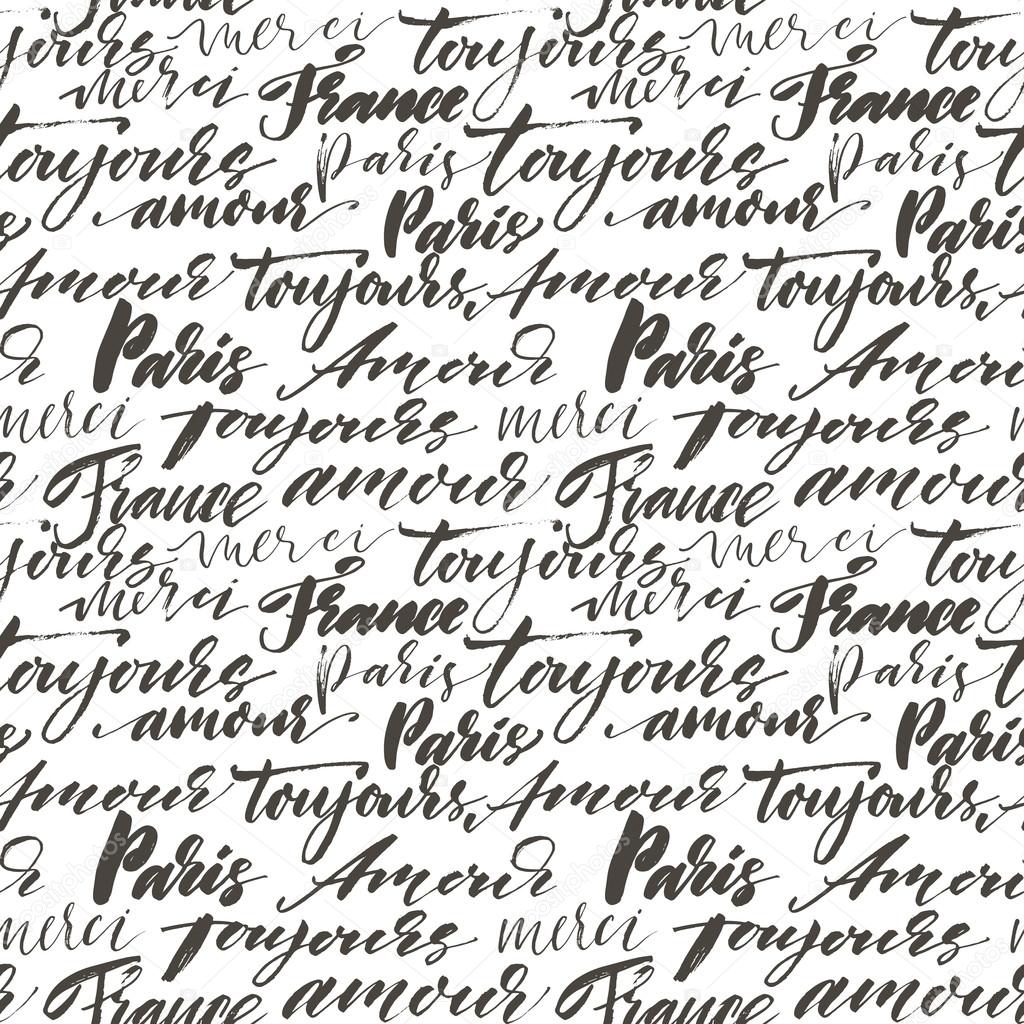 France France
toujours merci toujours merci tou
merci France merci France
toujours Paris toujours Paris
amour Paris amour Paris
Amour toujours, Amour toujours,
Paris Amour Paris Amour
merci toujours merci toujours
France amour France amour
toujours merci toujours merci tou
merci France merci France
toujours Paris toujours Paris
amour Paris amour Paris
Amour toujours, Amour toujours,
Paris Amour Paris Amour
merci toujours merci toujours
France amour France amour